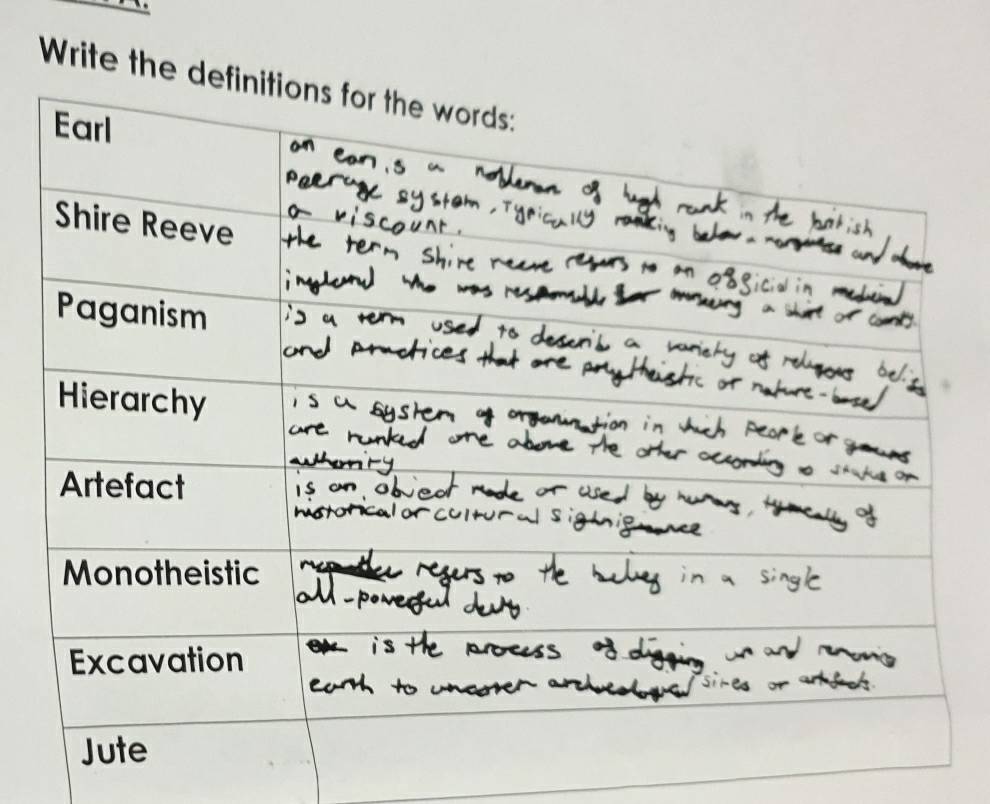 Write the definitions for the words:
Earl
an earl is a nobleman of high rank in the british
peerage system, typically ranking below a marquess and above
a viscount.
Shire Reeve
the term shire reeve regers to an official in medieval
ingland who was responsible for a shire or county.
Paganism
is a term used to describ a variety of religous belifs
and practices that are polytheistic or nature-based
Hierarchy
is a system of organization in which people or groups
are ranked one above the other according to status or
authority
Artefact
is an object made or used by humans, typically of
historical or cultural
Monotheistic
regers to the belieg in a single
all-powerful deity.
Excavation
is the process of digging up and removing
earth to uncover archeological sites or artifacts.
Jute